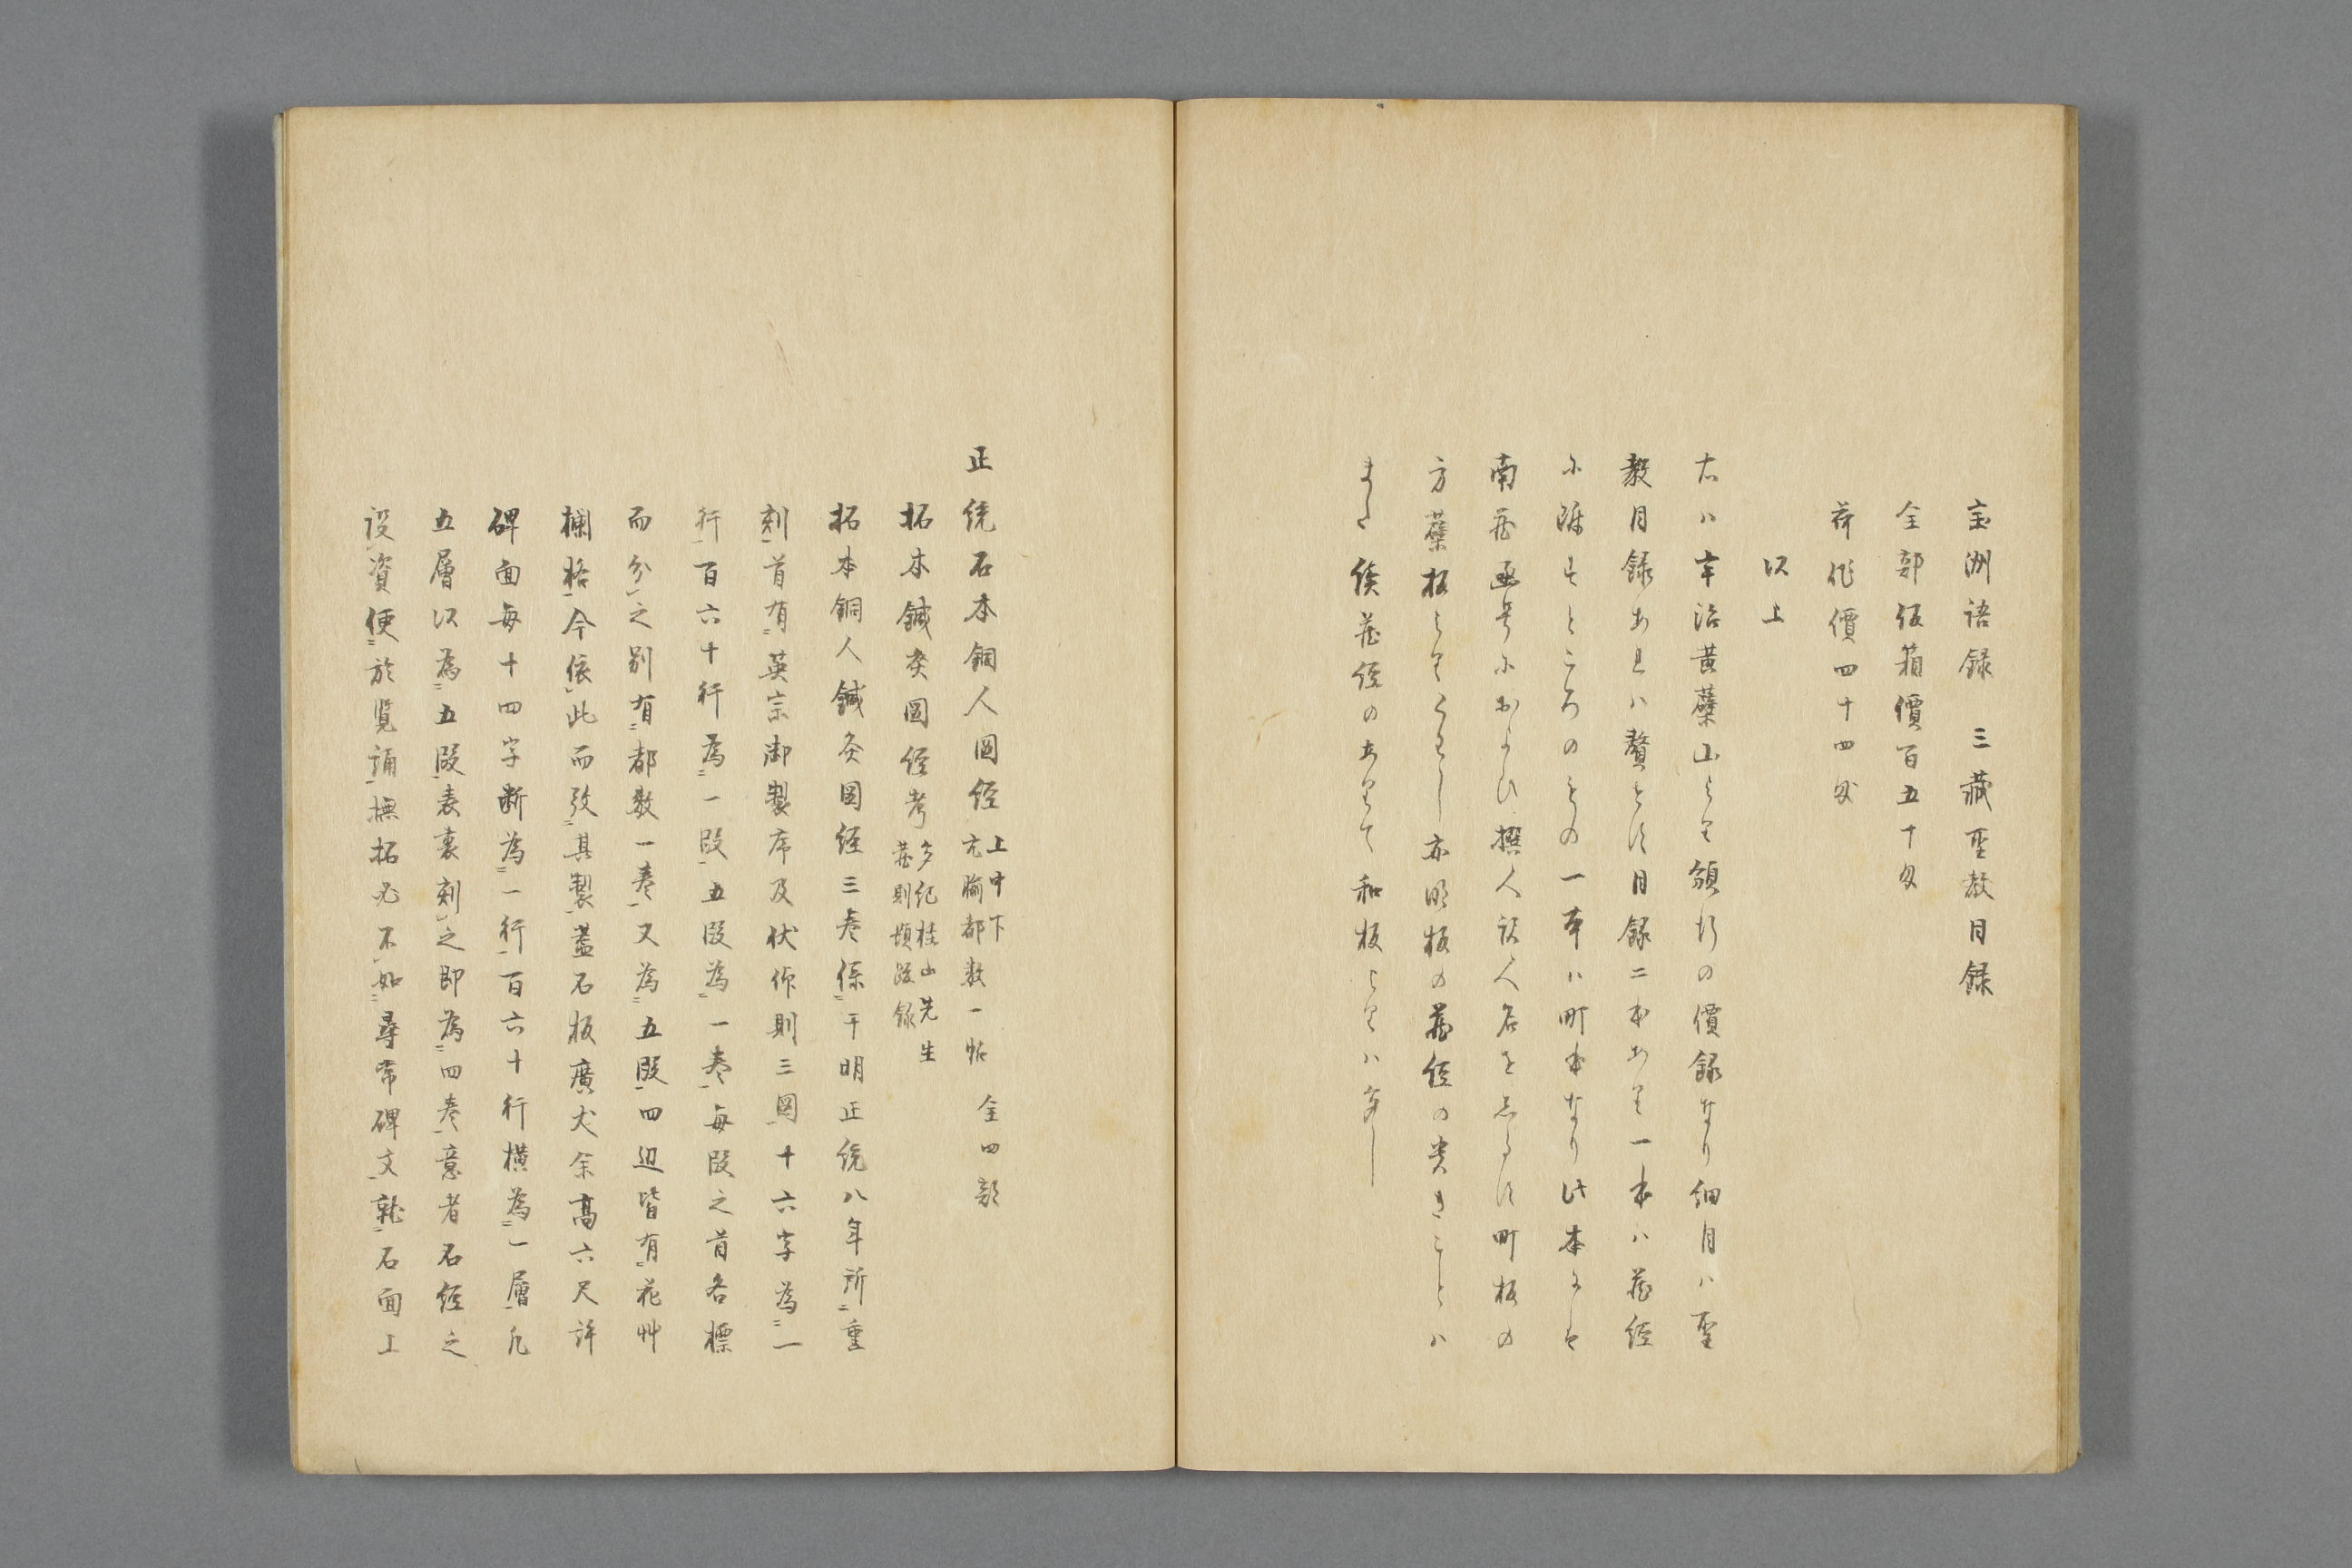 宝洲語録　三藏聖教目録
全部板箱價百五十匁
荷作價四十四匁
以上
右ハ宇治黄蘗山より領行の價録なり細目ハ聖
教目録あれハ贅せす目録二本あり一本ハ蔵経
に附するところのもの一本ハ町本なり此本にハ
南蔵函号および撰人訳人名をしるす町板の
方蘗板よりくはし亦明板の蔵経の貴きことハ
また倭蔵経の
和板よりハ
正統石本銅人圖経 上中下 亢龥都数一帖 全四部
拓本鍼灸圖経考 多紀桂山先生 蔵則
拓本銅人鍼灸圖経三巻係于明正統八年所重
刻首有英宗御製序及伏俯側三圖十六字為一
行百六十行為一段五段為一巻毎段之首各標
而分之別有都数一巻又為五段四辺皆有花艸
欄格今依此而攷其製蓋石板廣丈余高六尺許
碑面毎十四字断為一行百六十行横為一層凡
五層以為五段表裏刻之即為四巻意者石経之
設資便於覧誦撫拓必不如尋常碑文就石面上